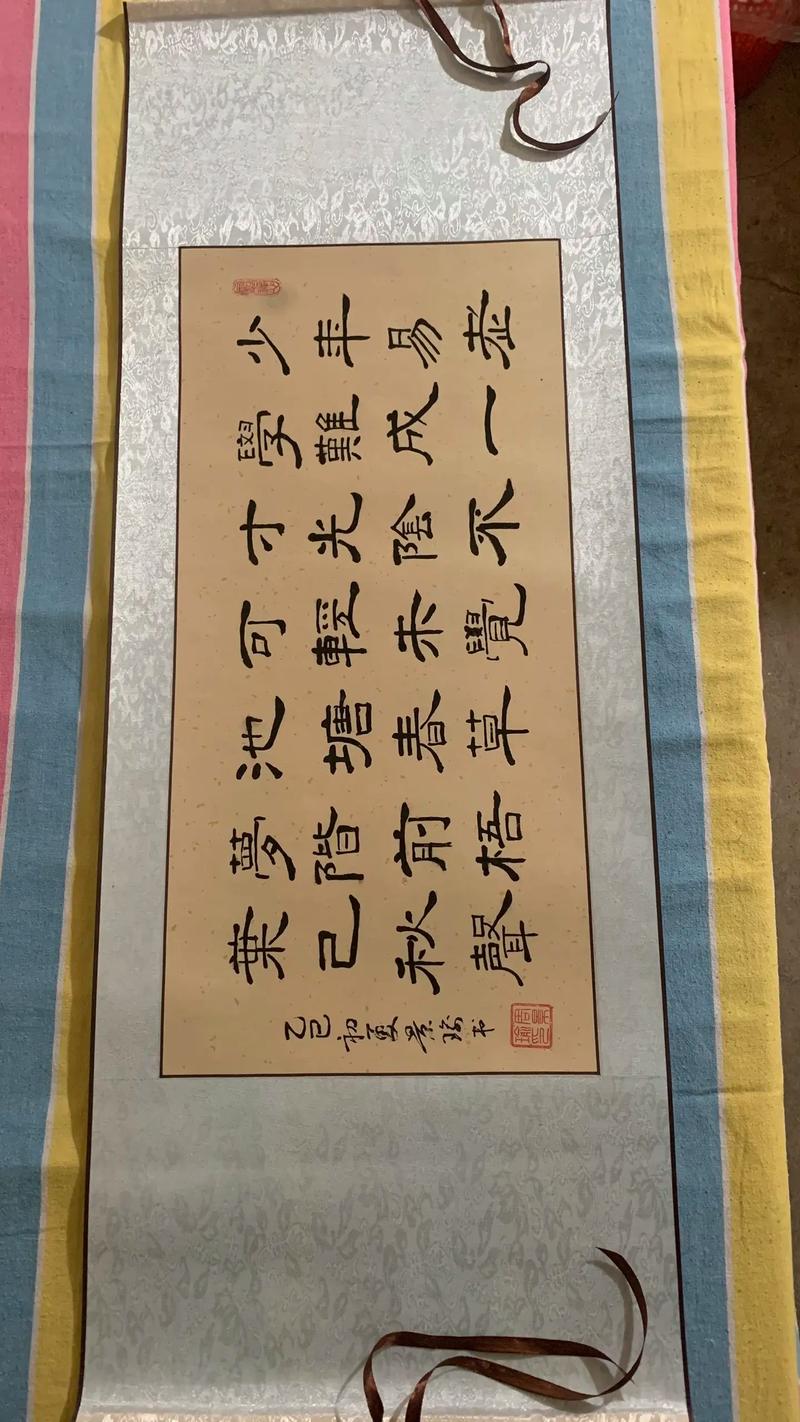 少年易老
學難成一
寸光陰不
可輕未覺
池塘春草
夢階前梧
葉已秋聲
乙巳初夏景书